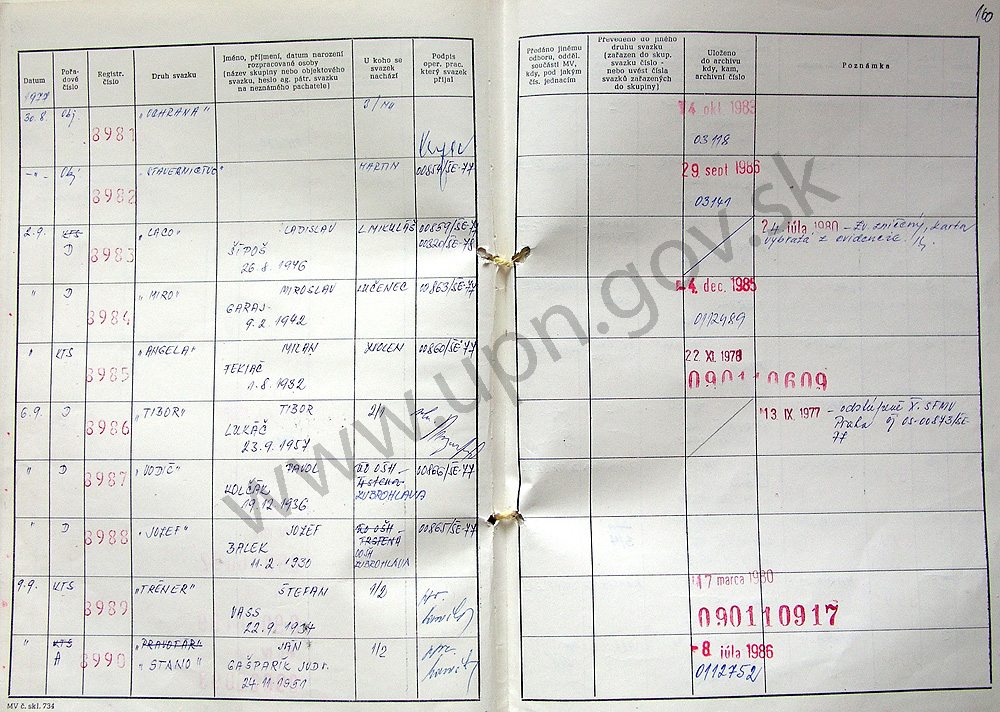 160
Datum
Pořa-
dové
číslo
Registr.
číslo
Druh svazku
Jméno, příjmení, datum narození
rozpracované osoby
(název skupiny nebo objektového
svazku, heslo ag. pátr. svazku
na neznámého pachatele)
U koho se
svazek
nachází
Podpis
oper. prac.
který svazek
přijal
Předáno jinému
odboru, odděl.
součásti MV,
kdy, pod jakým
čís. jednacím
Převedeno do jiného
druhu svazku
(zařazen do skup.
svazku číslo -
nebo uvést čísla
svazků zařazených
do skupiny)
Uloženo
do archivu
kdy, kam,
archivní číslo
Poznámka
1977
30.8. Obj. 8981 „OCHRANA"
14 okt. 1983
03118
-„- Obj 8982 MARTIN 00854/ŠE-77
29 sept 1986
03141
2.9. D 8983 „LACO" LADISLAV L. MIKULÁŠ 00859/ŠE-77
ŠÍPOŠ 00320/ŠE-78
26.8.1946
24. júla 1980 - Zv. zničený, karta
vybratá z evidencie.
" D 8984 „MIRO" MIROSLAV LUČENEC 00863/ŠE-77
GARAJ
9.2.1942
-4. dec. 1985
0112489
" KTS 8985 „ANGELA" MILAN ZVOLEN 00860/ŠE-77
1.8.1932
22 XI. 1978
090110609
6.9. D 8986 „TIBOR" TIBOR 2/1
LUKÁČ
23.9.1957
13 IX 1977 - odstúpené X. SFMV
Praha čj OS-00873/ŠE-
77
" D 8987 „VODIČ" PAVOL OO OŠH 00866/ŠE-77
KOLČÁK ZUBROHLAVA
19.12.1936
" D 8988 „JOZEF" JOZEF OO OŠH 00865/ŠE-77
BALEK TRSTENÁ
11.2.1930 OOŠH
ZUBROHLAVA
9.9. KTS 8989 „TRÉNER" ŠTEFAN 1/2
VASS
22.9.1934
17 marca 1980
090110917
" KTS 8990 „PRAVOTÁR" JÁN 1/2
A „STANO" GAŠPARÍK JUDr.
24.11.1951
-8 júla 1986
0112752
MV č. skl. 734
www.upn.gov.sk